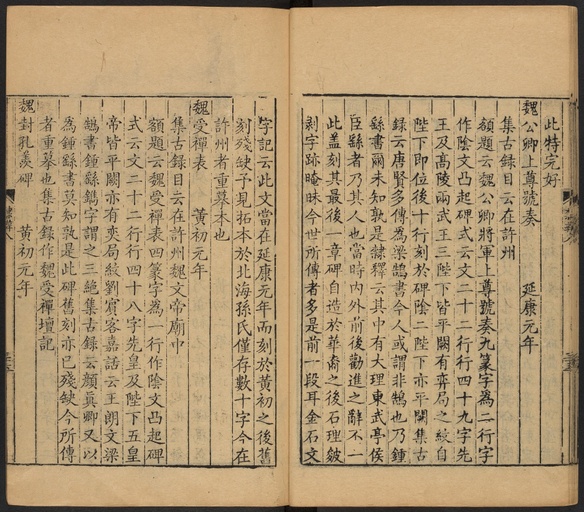 此特完好
魏公卿上尊號奏　延康元年
集古錄目云在許州
額題云魏公卿將軍上尊號奏九篆字為二行字
作陰文凸起碑式云文二十二行行四十九字先
王及高陵兩武王三陛下皆平闕有弈局之紋自
陛下即位後十行刻於碑陰二陛下亦平闕集古
錄云唐賢多傳為梁鵠書今人或謂非鵠也乃鍾
繇書爾未知孰是隸釋云其中有大理東武亭侯
臣繇者乃其人也當時內外前後勸進之辭不一
此蓋刻其最後一章碑自造於華裔之後石理皴
剥字跡晻昧今世所傳者多是前一段耳金石文
字記云此文當在延康元年而刻於黃初之後舊
刻殘缺予見拓本於北海孫氏僅存數十字今在
許州者重摹本也
魏受禪表　黃初元年
集古錄目云在許州魏文帝廟中
額題云魏受禪表四篆字為一行作陰文凸起碑
式云文二十二行行四十八字先皇及陛下五皇
帝皆平闕亦有奕局紋劉賓客嘉話云王朗文梁
鵠書鍾繇鐫字謂之三絕集古錄云顏真卿又以
為鍾繇書莫知孰是此碑舊刻亦已殘缺今所傳
者重摹也集古錄作魏受禪壇記
魏封孔羨碑　黃初元年